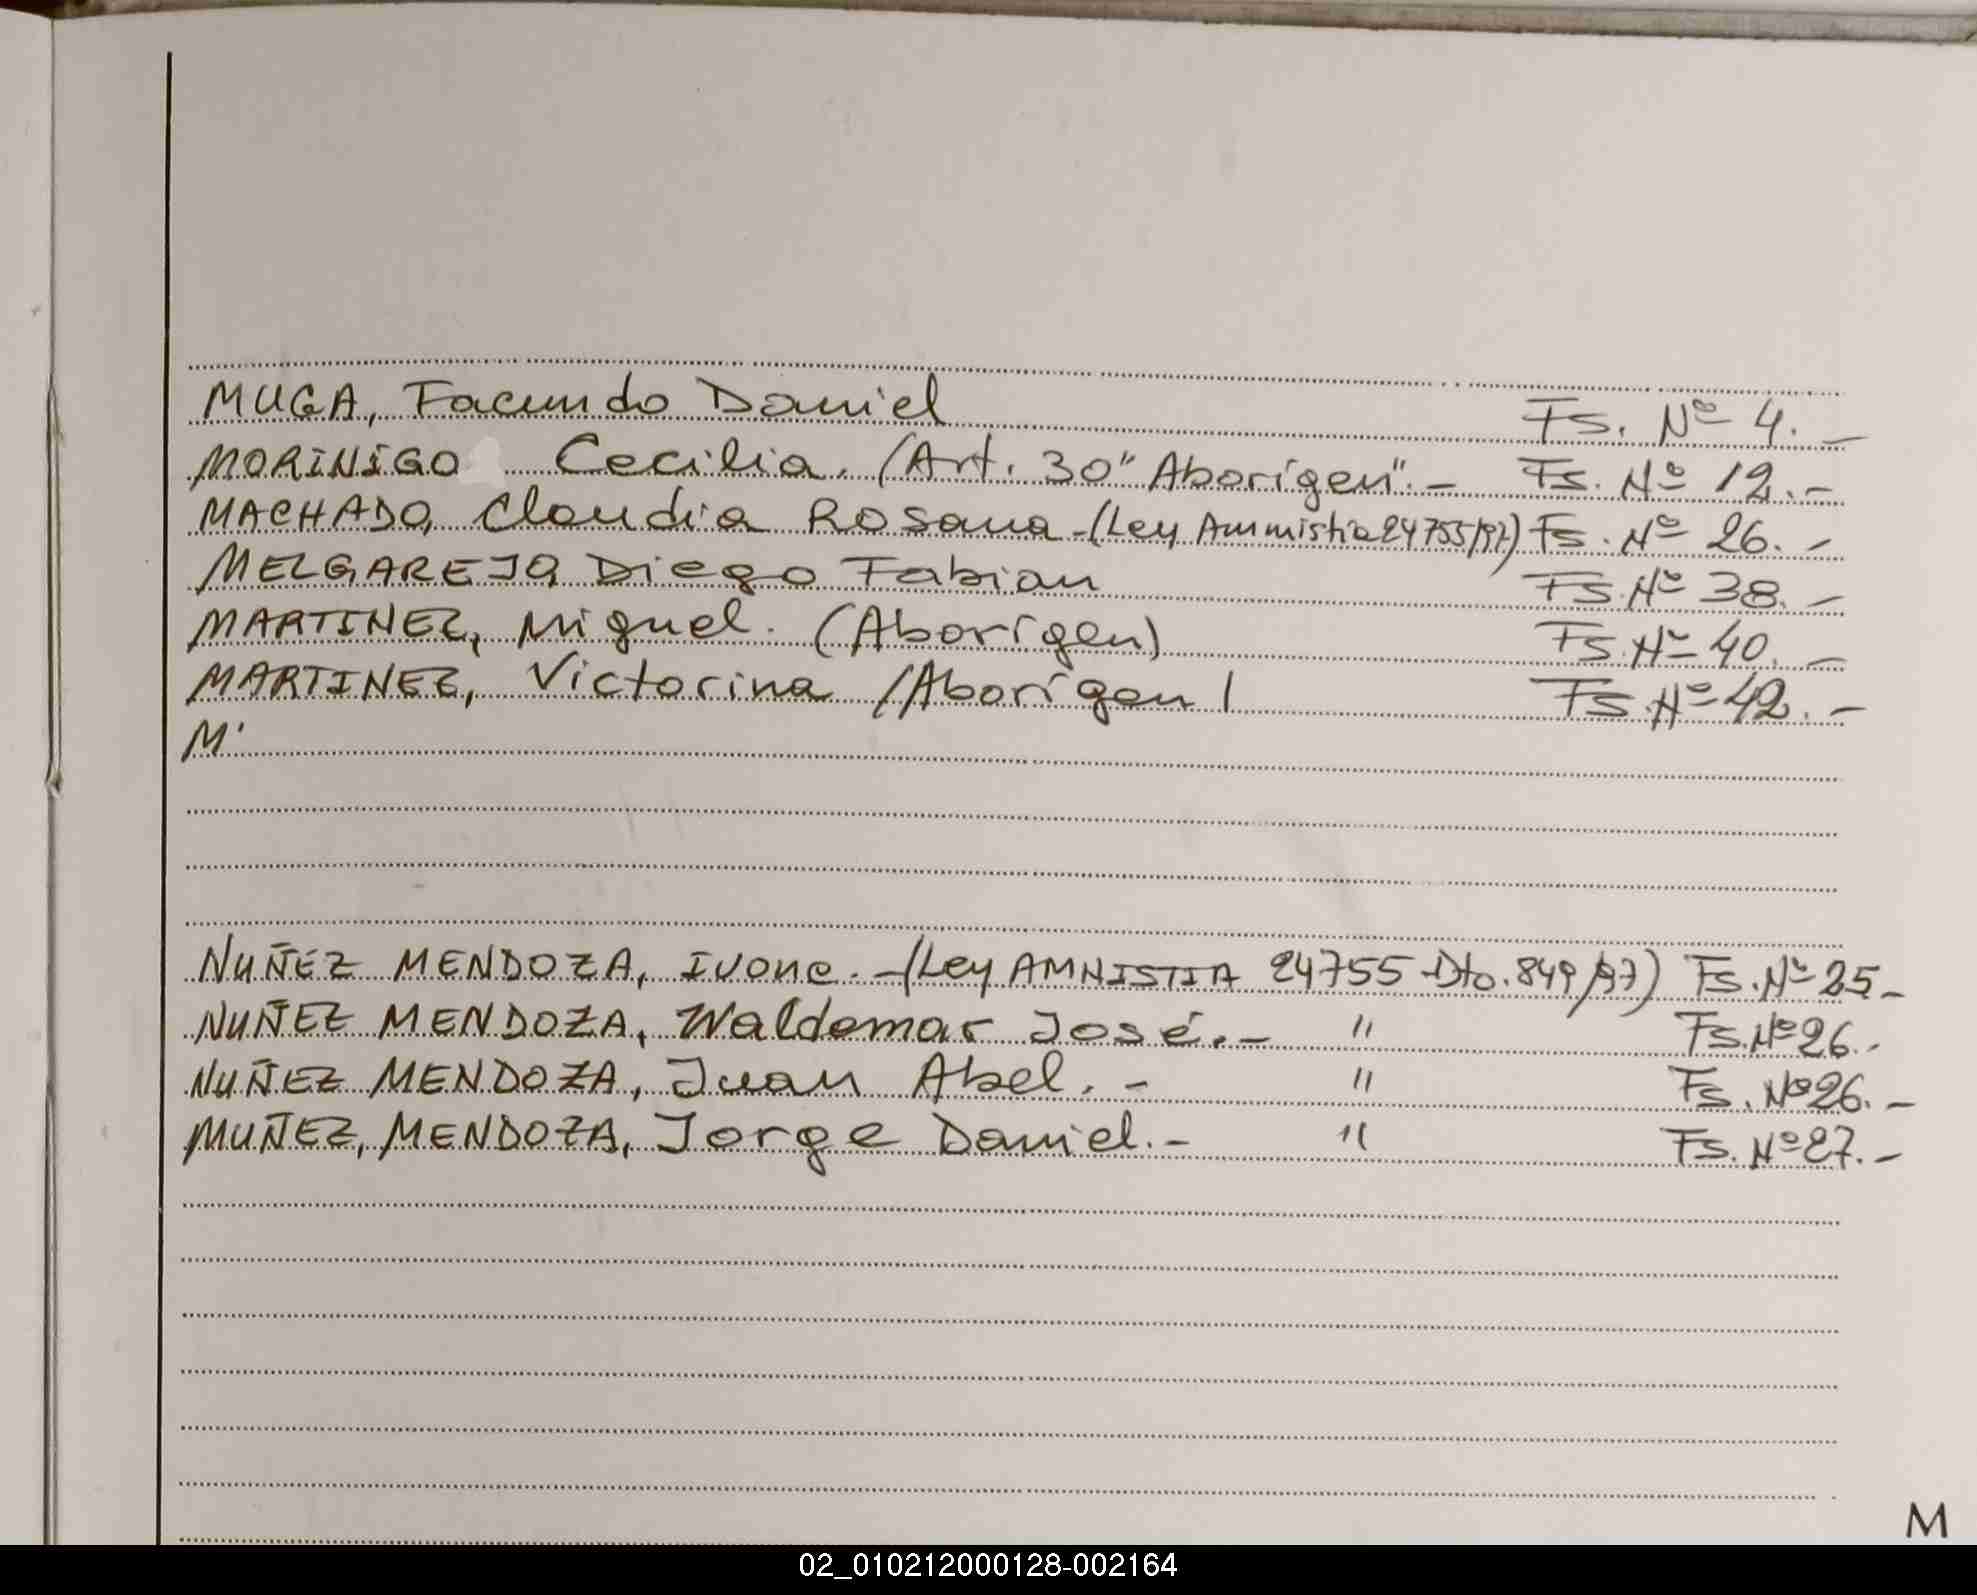 MUGA, Facundo Daniel Fs. Nº 4.-
MORINIGO Cecilia. (Art. 30" Aborígen".- Fs. Nº 12.-
MACHADO, Claudia Rosana-(Ley Ammistia 24755/97) Fs. Nº 26.-
MELGAREJO, Diego Fabian Fs. Nº 38.-
MARTINEZ, Miguel. (Aborígen) Fs. Nº 40.-
MARTINEZ, Victorina (Aborígen) Fs. Nº 42.-
M.
NUÑEZ MENDOZA, Ivone.-(Ley AMNISTIA 24755-Dto. 849/97) Fs. Nº 25.-
NUÑEZ MENDOZA, Waldemar José.- " Fs. Nº 26.-
NUÑEZ MENDOZA, Juan Abel.- " Fs. Nº 26.-
MUÑEZ, MENDOZA, Jorge Daniel.- " Fs. Nº 27.-
M
02_010212000128-002164